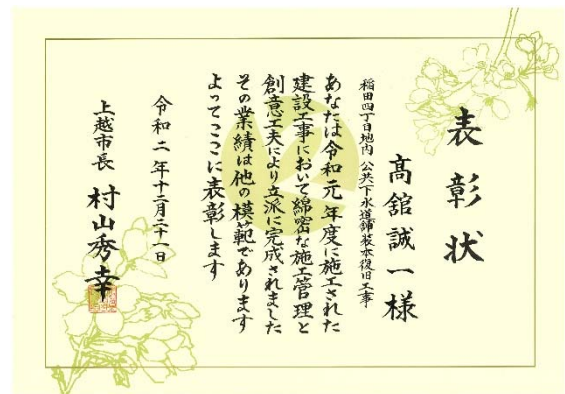 表彰状
稲田四丁目地内 公共下水道舗装本復旧工事
髙舘誠一様
あなたは令和元年度に施工された
建設工事において綿密な施工管理と
創意工夫により立派に完成されました
その業績は他の模範であります
よってここに表彰します
令和二年十二月二十一日
上越市長 村山秀幸